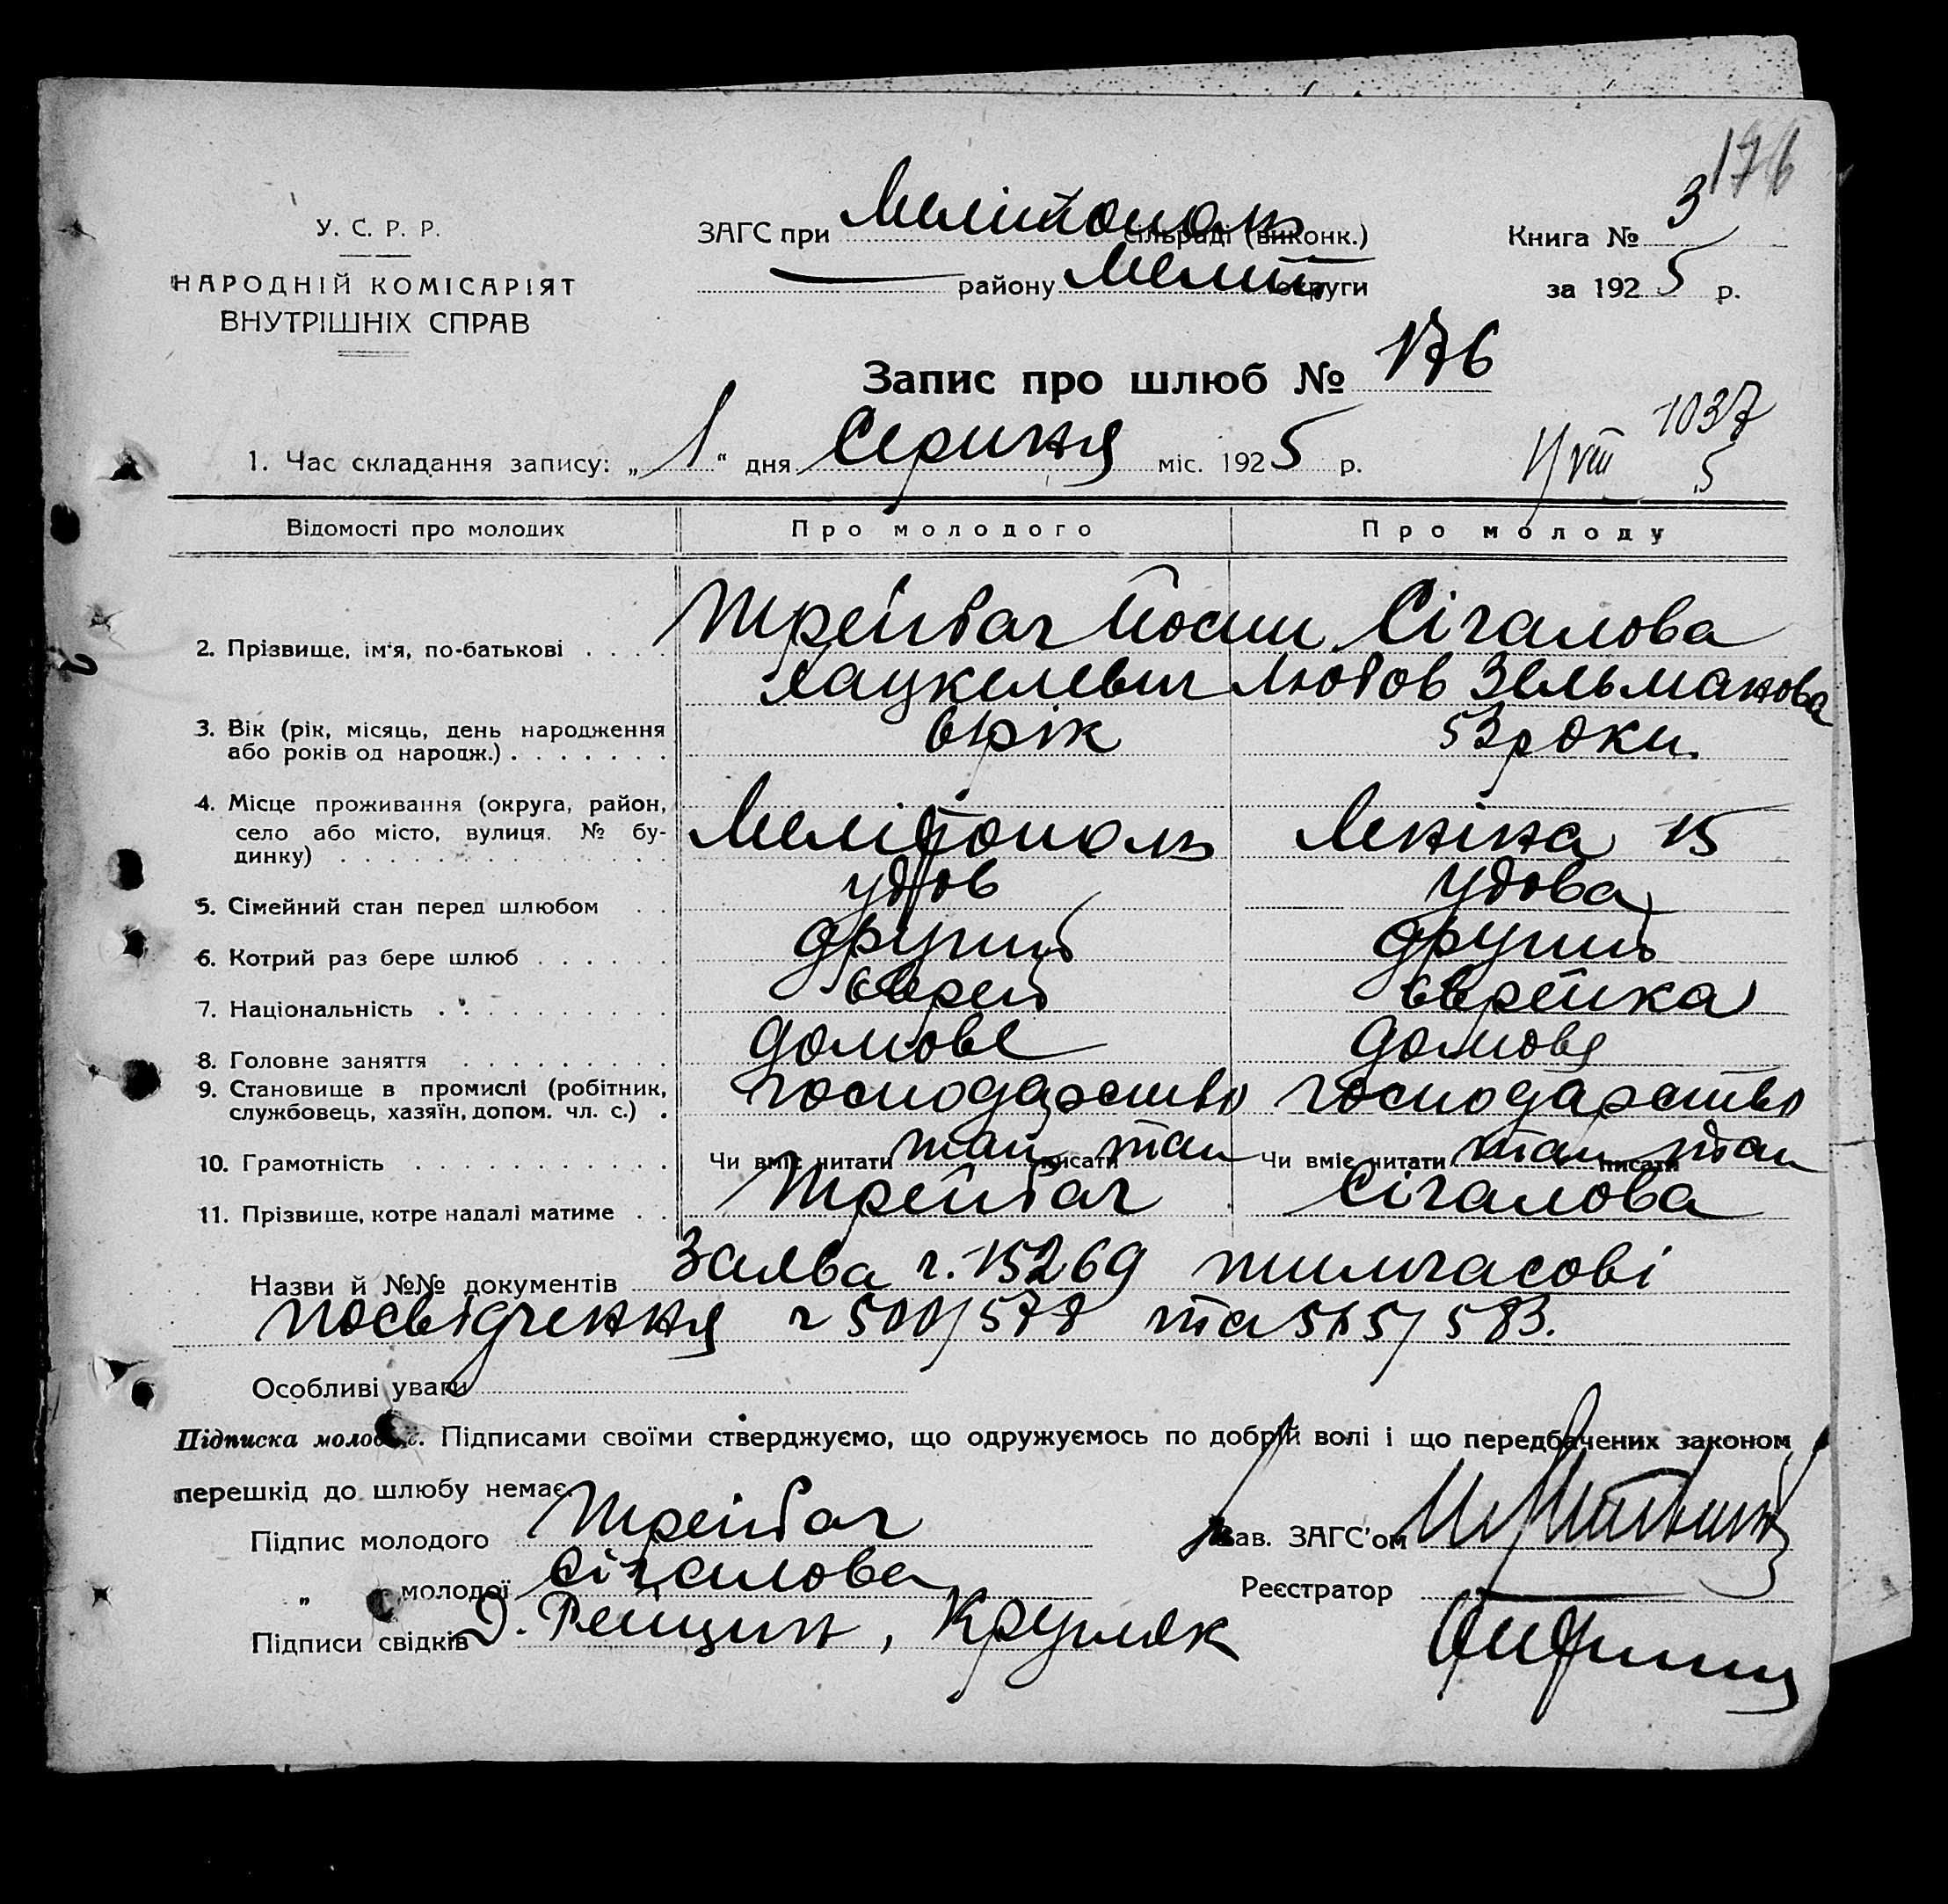 176
У. С. Р. Р.
НАРОДНІЙ КОМІСАРІЯТ
ВНУТРІШНІХ СПРАВ
ЗАГС при Мелітополь сільраді (виконк.)
району Меліт округи
Книга № 3
за 1925 р.
Запис про шлюб № 176
1. Час складання запису: „1“ дня Серпня міс. 1925 р.
1037
1/VIII 5
Відомості про молодих
Про молодого
Про молоду
2. Прізвище, ім'я, по-батькові . . . .
Трейбач Йосип
Хацкелевич
Сігалова
Любов Зельманова
3. Вік (рік, місяць, день народження
або років од народж.) . . . . . . .
61 рік
53 роки.
4. Місце проживання (округа, район,
село або місто, вулиця. № бу-
динку) . . . . . . . . . . . . . .
Мелітополь
Леніна 15
5. Сімейний стан перед шлюбом . .
удов
удова
6. Котрий раз бере шлюб . . . . . .
другий
другий
7. Національність . . . . . . . . . .
єврей
єврейка
8. Головне заняття . . . . . . . . .
домове
домове
9. Становище в промислі (робітник,
службовець, хазяїн, допом. чл. с.) .
господарство
господарство
10. Грамотність . . . . . . . . . . .
Чи вміє читати так писати так
Чи вміє читати так писати так
11. Прізвище, котре надалі матиме . .
Трейбач
Сігалова
Назви й №№ документів Заява ч. 15269 тимчасові
посвідчення ч 500/578 та 515/583.
Особливі уваги
Підписка молодих. Підписами своїми стверджуємо, що одружуємось по добрій волі і що передбачених законом
перешкід до шлюбу немає.
Підпис молодого Трейбач
Зав. ЗАГС'ом
„ молодої Сігалова
Реєстратор
Підписи свідків Д. Рейцин, Кругляк